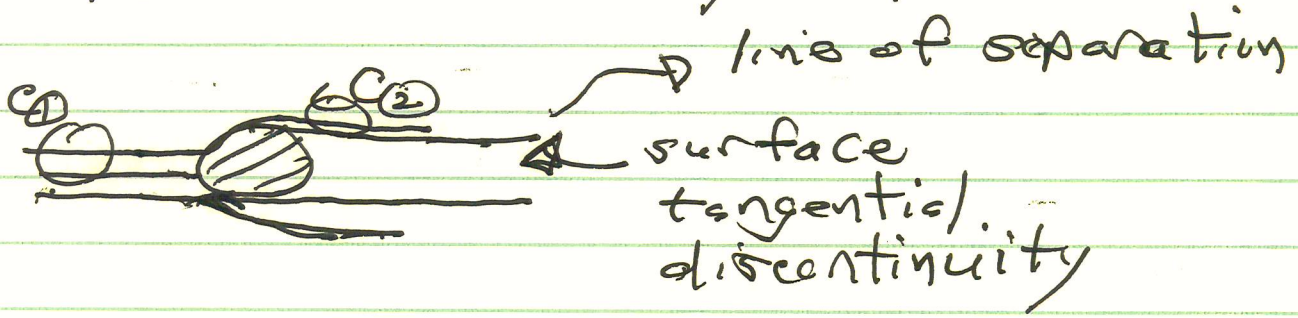 line of separation
C①
C②
surface
tangential
discontinuity